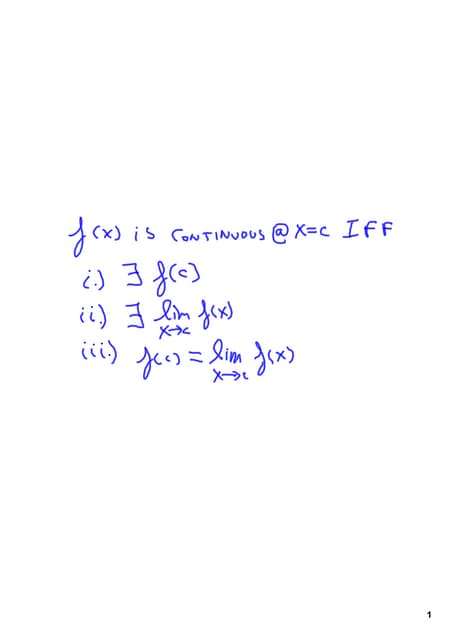 f(x) is CONTINUOUS @ x=c IFF
i.) ∃ f(c)
ii.) ∃ lim f(x)
x→c
iii.) f(c) = lim f(x)
x→c
1